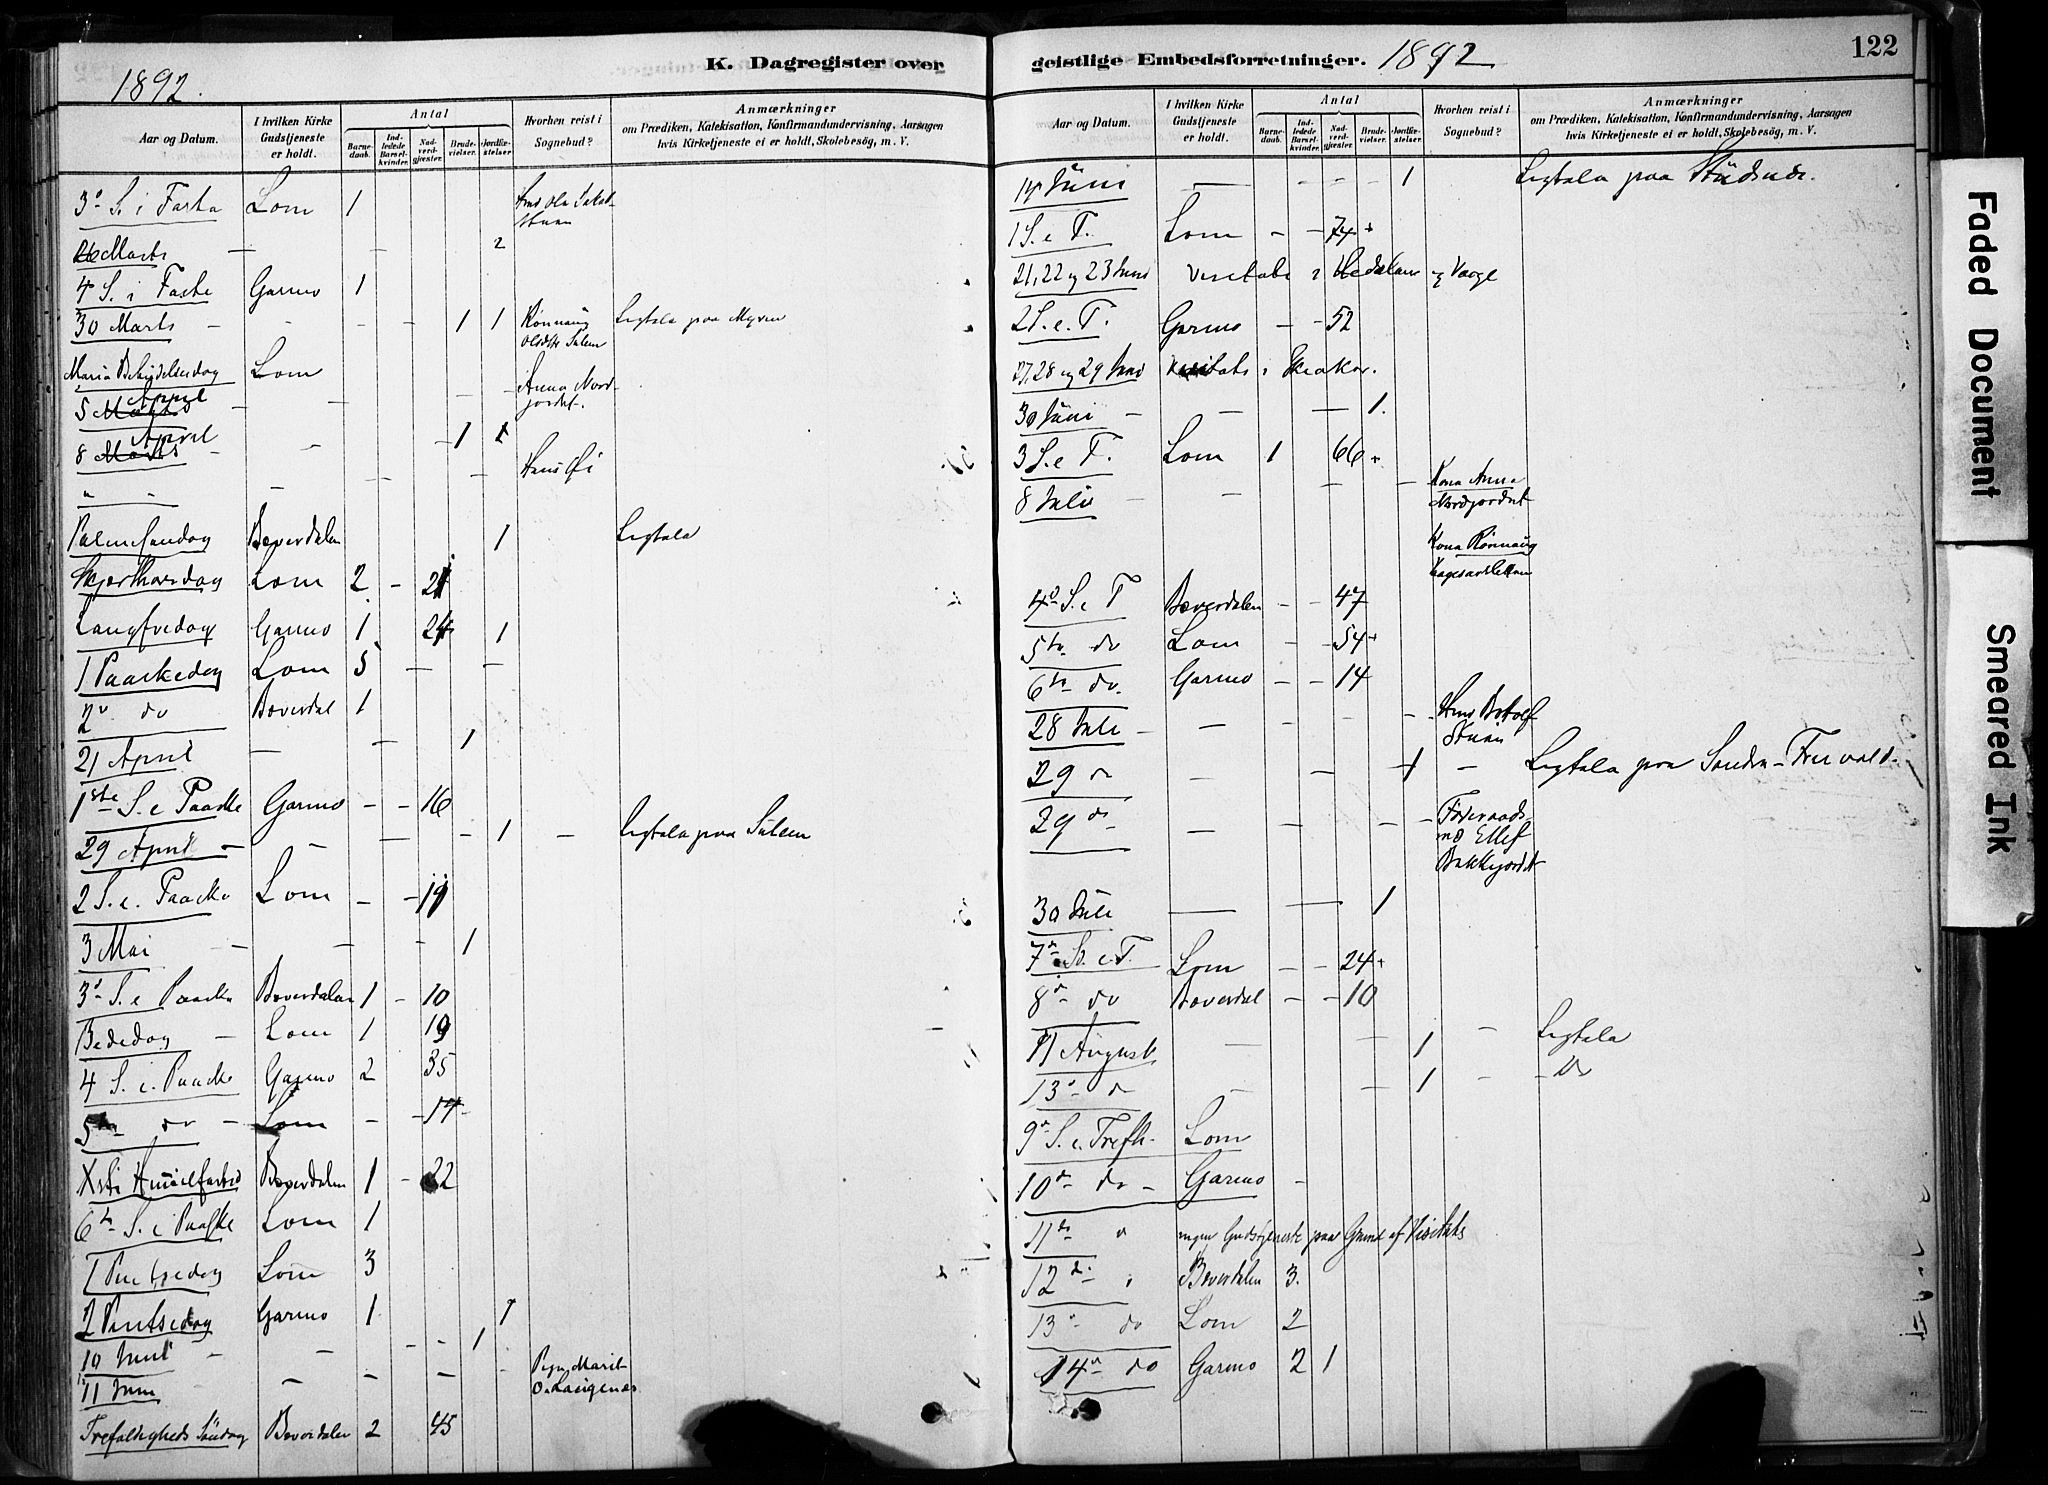 1892.
K. Dagregister over
Aar og Datum.
I hvilken Kirke Gudstjeneste er holdt.
Antal
Barnedaab.
Indledede Barselkvinder.
Nadverdgjæster.
Brudevielser.
Jordfæstelser
Hvorhen reist i Sognebud?
Anmærkninger
om Prædiken, Katekisation, Konfirmandundervisning, Aarsagen
hvis Kirketjeneste ei er holdt, Skolebesøg, m. V.
3d S. i Fasta Lom 1
26 Marts — — 2
4 S. i Faste Garmo 1
30 Marts - - - 1 1 Rønnaug Ligtale paa Myren
Maria Bebudelsesdag Lom
5 April — — - Anna Nordjordet.
8 April - - - 1 1
" - - - - Hans
Palmesøndag Bæverdalen 1 Ligtale
Skjærthorsdag Lom 2 - 21
Langfredag Garmo 1 24 1
1 Paaskedag Lom 5 — —
2n do Bæverdal 1
21 April — — 1
1ste S. e Paaske Garmo - - 16
29 April — — — - 1 - Ligtale paa Sulem
2 S. e. Paaske Lom - - 19
3 Mai - - - 1
3d S. e Paaske Bæverdalen 1 - 10
Bededag - Lom 1 19
4 S. e. Paaske Garmo 2 35
5te do - Lom - - 17
Xsti Himmelfartsd Bæverdalen 1 - 22
6te S. e Paaske Lom 1
1 Pintsedag Lom 3
2 Pintsedag Garmo 1 1
10 Juni - - - - 1
11 Juni - - - - - Marit
Trefoldigheds Søndag Bæverdalen 2 45
geistlige Embedsforretninger. 1892
122
Aar og Datum.
I hvilken Kirke Gudstjeneste er holdt.
Antal
Barnedaab.
Indledede Barselkvinder.
Nadverdgjæster.
Brudevielser.
Jordfæstelser.
Hvorhen reist i Sognebud?
Anmærkninger
om Prædiken, Katekisation, Konfirmandundervisning, Aarsagen
hvis Kirketjeneste ei er holdt, Skolebesøg, m. V.
14 Juni — - - - 1 Ligtale paa
1 S. e T. Lom - - 74
21, 22 og 23 Juni Visitats i Hedalen og Vaage
2 S. e. T. Garmo - - 52
27, 28 og 29 Juni Visitats i Skiaker.
30 Juni - — — 1.
3 S. e T. Lom 1 66
8 Juli - - - - Kona Anna
Nordjordet
Kona Rønnaug
4d S. e T Bæverdalen - - 47
5te do Lom - - 54
6te do. Garmo - - 14
28 Juli - - - - -
29 do - - 1 - Ligtale paa
29 do - - - - Føderaads-
md Ellef
Bakkejordet
30 Juli — — 1
7de S. e. T. Lom - - 24
8d do Bæverdal - - 10
11 August - - 1 - Ligtale
13d do - - 1 - - Do
9d S. e. Trefh. Lom
10d do - Garmo -
11te do ingen Gudstjeneste paa Grund af Visitats
12d Bæverdalen 3.
13d do Lom 2
14d do Garmo 2 1
Faded Document
Smeared Ink